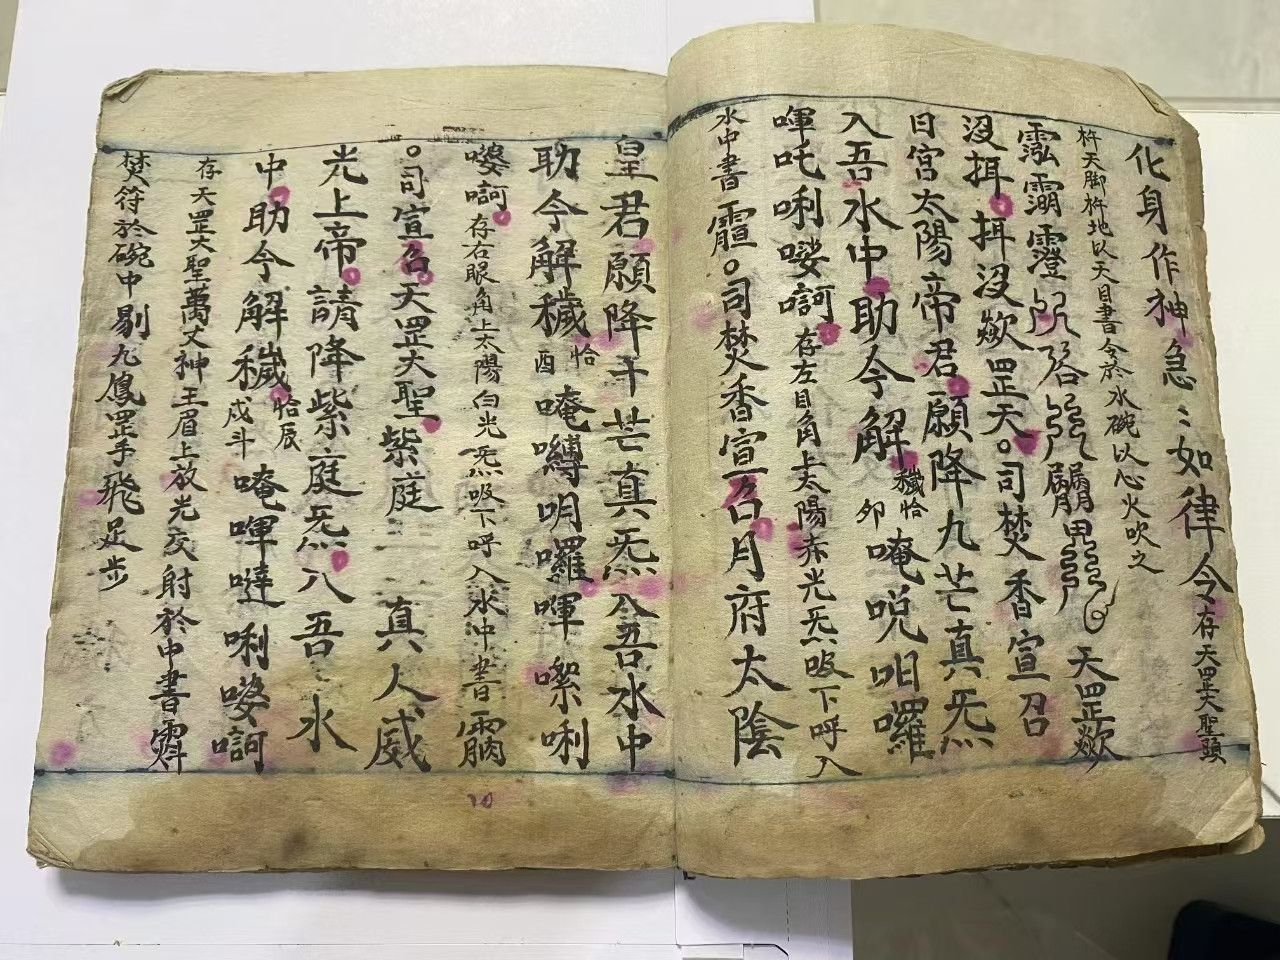 化身作神急〻如律令存天罡大聖頭
杵天脚杵地以天目書令於水碗以心火吹之
天罡欻
沒挕挕沒欻罡天。司焚香宣召
日宮太陽帝君願降九芒真炁
入吾水中助令解穢恰卯唵哾呾囉
㖇吒唎𡁠㗿存左目角上太陽赤光炁吸下呼入
水中書。司焚香宣召月府太陰
皇君願降十芒真炁入吾水中
助令解穢恰酉唵嚩明囉㖇㗫唎
𡁠㗿存右眼角上太陽白光炁吸下呼入水中書
。司宣召天罡大聖紫庭真人威
光上帝請降紫庭炁入吾水
中助令解穢恰辰戍斗唵㖇㗳唎𡁠㗿
存天罡大聖萬丈神王眉上放光交射於中書
焚符於碗中剔九鳳罡手飛足步
10